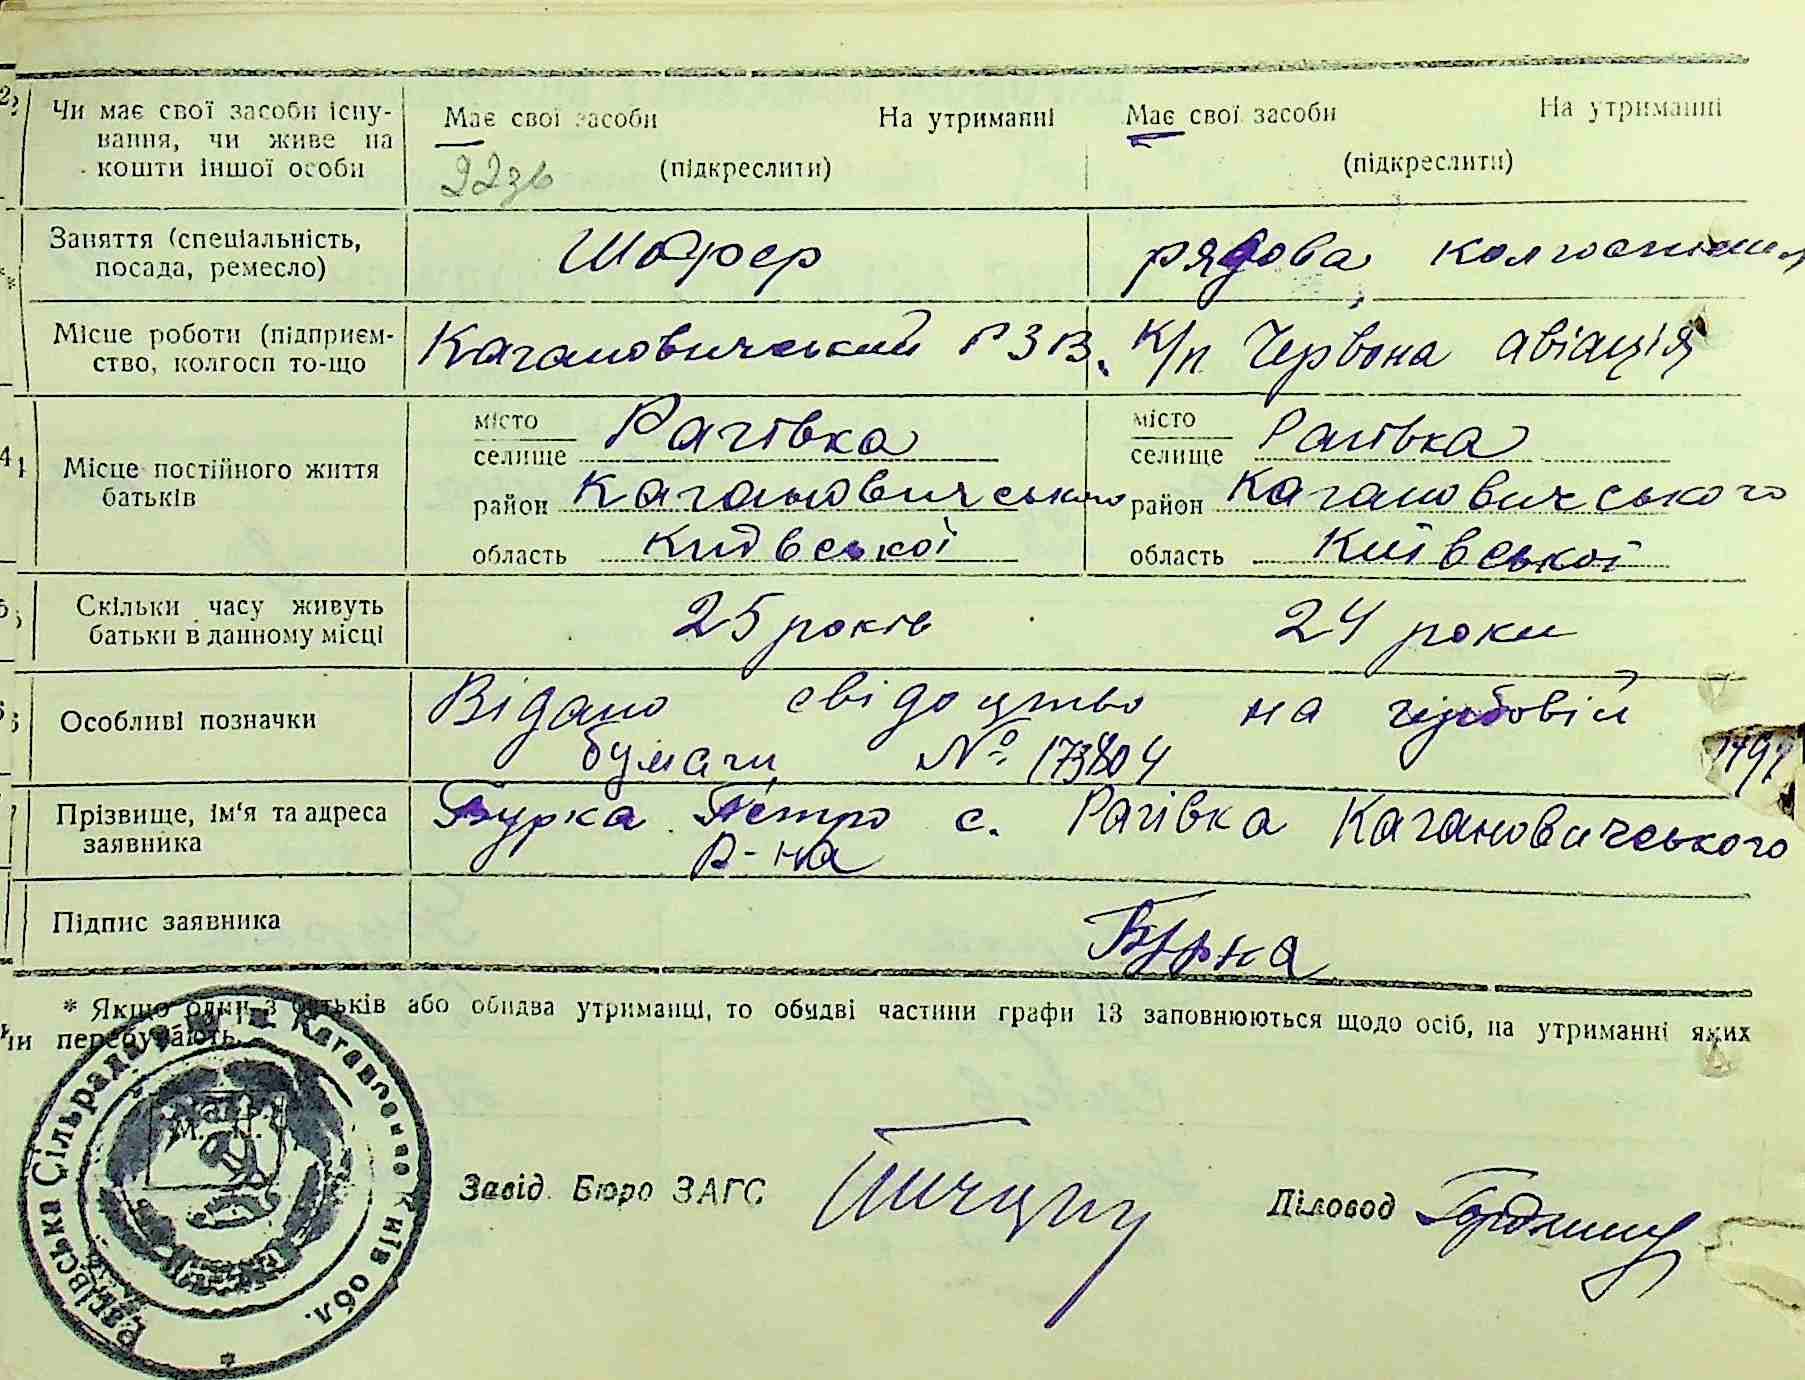 Чи має свої засоби існу-
вання, чи живе на
кошти іншої особи
Має свої засоби На утриманні
(підкреслити)
Має свої засоби На утриманні
(підкреслити)
Заняття (спеціальність,
посада, ремесло)
Шофер
рядова колгоспниця
Місце роботи (підприєм-
ство, колгосп то-що
Кагановичський РЗВ.
К/п Червона авіація
Місце постійного життя
батьків
місто
селище Рагівка
район Кагановичського
область Київської
місто
селище Рагівка
район Кагановичського
область Київської
Скільки часу живуть
батьки в данному місці
25 років
24 роки
Особливі позначки
Відано свідоцтво на гербовій
бумаги №
Прізвище, ім'я та адреса
заявника
Бурка Петро с. Рагівка Кагановичського
р-на
Підпис заявника
Бурка
* Якщо один з батьків або обидва утриманці, то обидві частини графи 13 заповнюються щодо осіб, на утриманні яких
перебувають.
Рагівська Сільрада Кагановичського р-на Київ обл.
М. П.
Завід. Бюро ЗАГС
Діловод